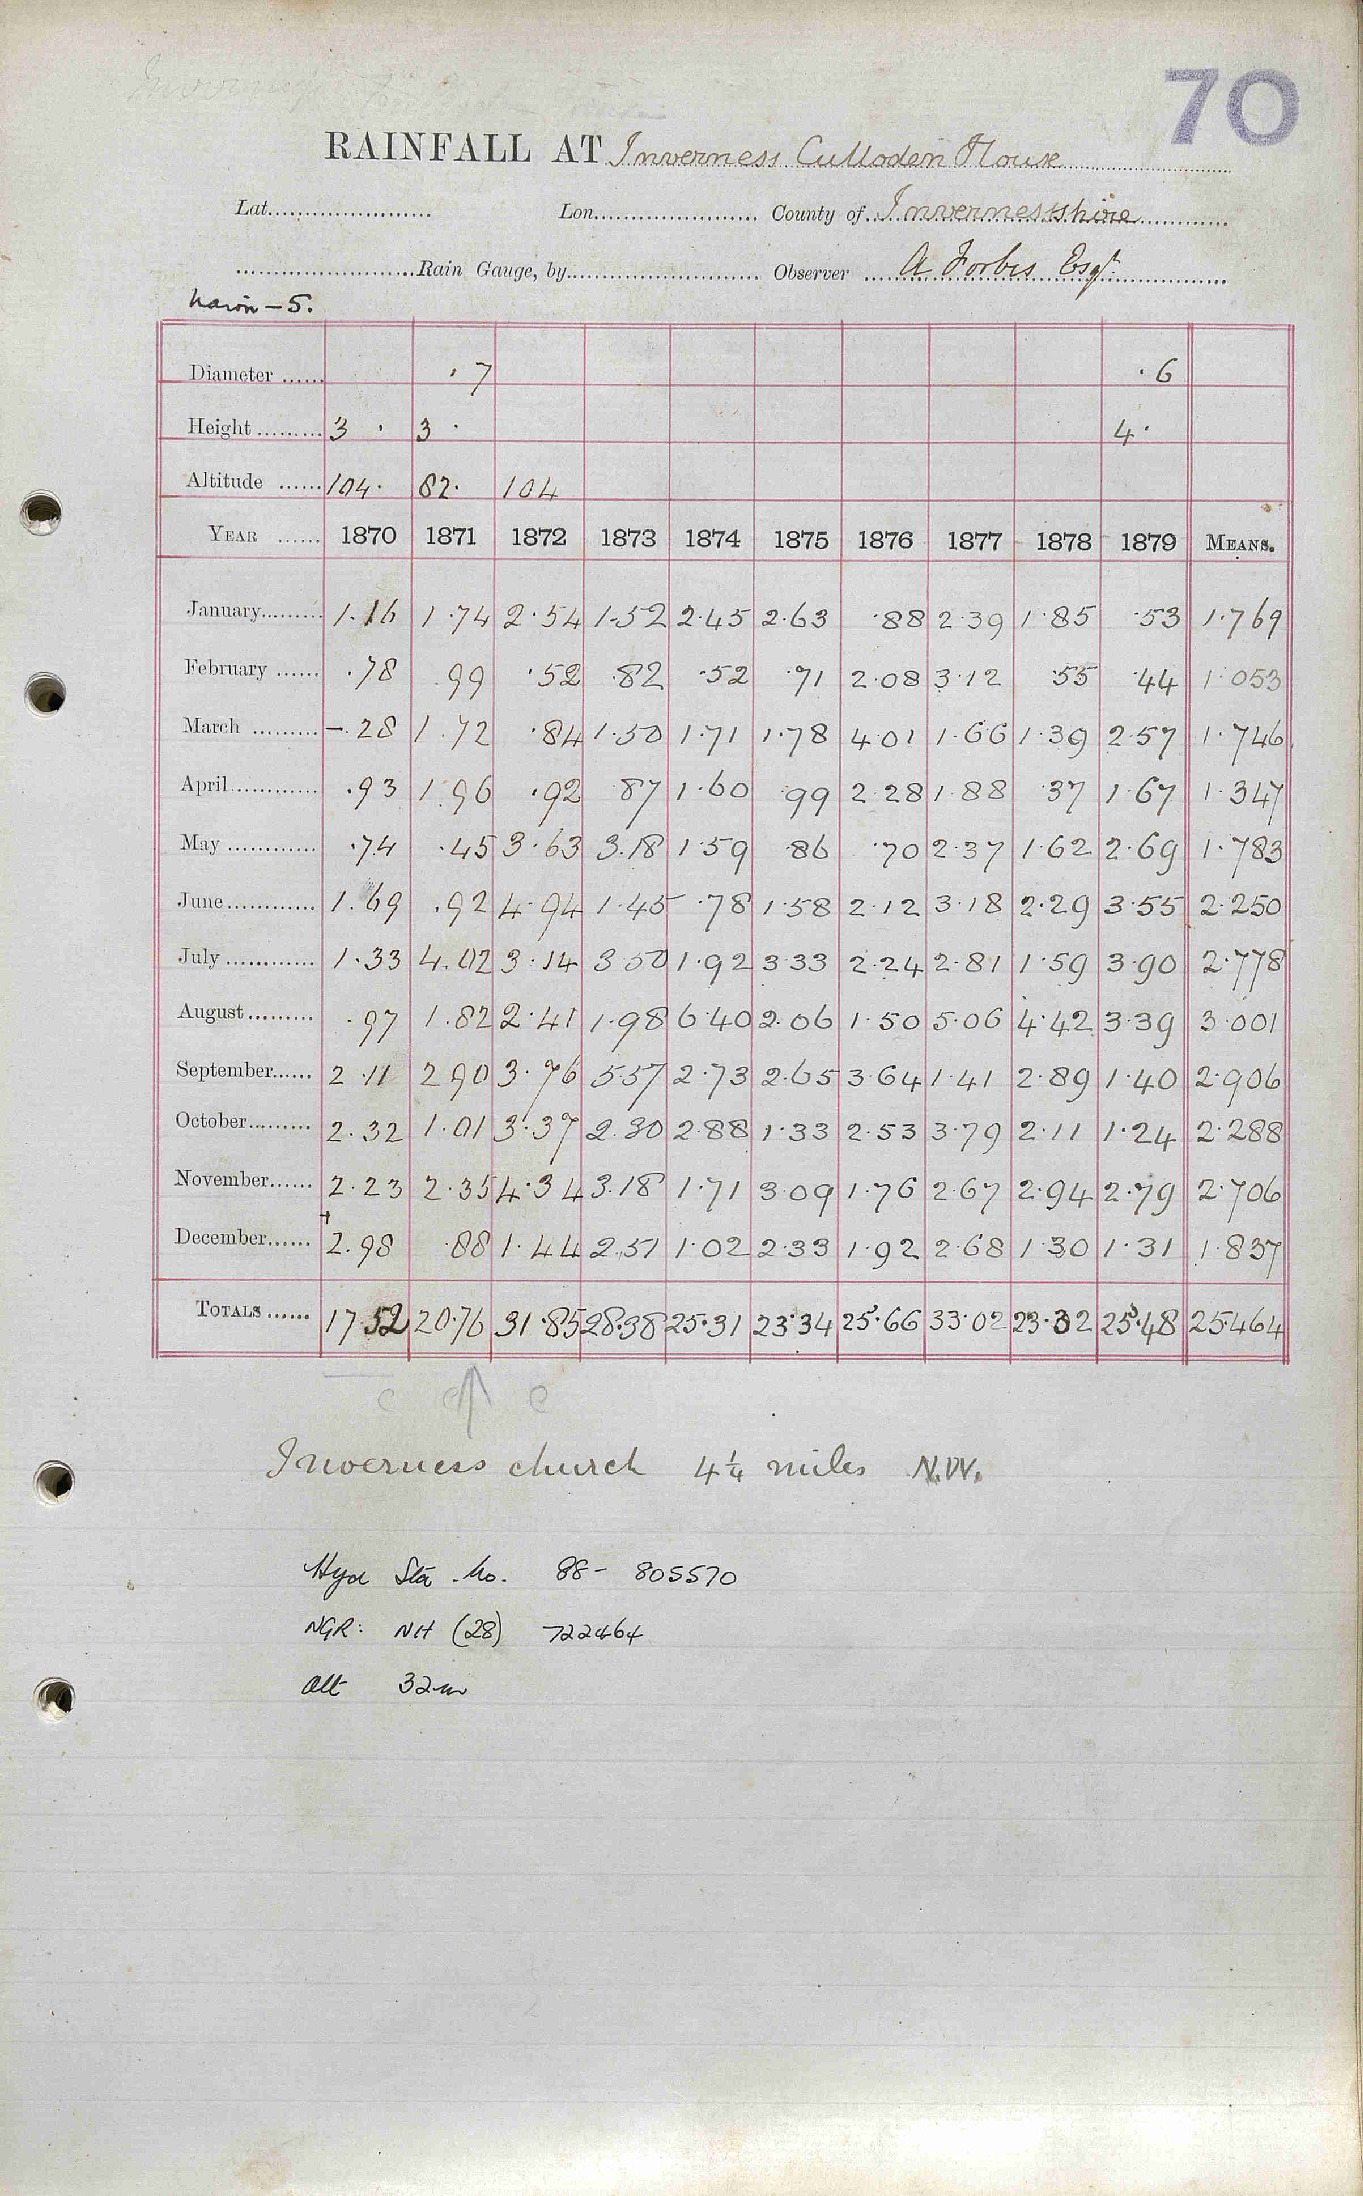 70
RAINFALL AT Inverness Culloden House
Lat. Lon. County of Invernessshire
Rain Gauge, by Observer A Forbes Esqr.
Nairn - 5.
Diameter ·7 ·6
Height 3 · 3 · 4·
Altitude 104· 82· 104
YEAR 1870 1871 1872 1873 1874 1875 1876 1877 1878 1879 MEANS.
January 1.16 1.74 2.54 1.52 2.45 2.63 .88 2.39 1.85 .53 1.769
February .78 .99 .52 .82 .52 .71 2.08 3.12 .55 .44 1.053
March -.28 1.72 .84 1.50 1.71 1.78 4.01 1.66 1.39 2.57 1.746
April .93 1.96 .92 .87 1.60 .99 2.28 1.88 .37 1.67 1.347
May .74 .45 3.63 3.18 1.59 .86 .70 2.37 1.62 2.69 1.783
June 1.69 .92 4.94 1.45 .78 1.58 2.12 3.18 2.29 3.55 2.250
July 1.33 4.02 3.14 3.50 1.92 3.33 2.24 2.81 1.59 3.90 2.778
August .97 1.82 2.41 1.98 6.40 2.06 1.50 5.06 4.42 3.39 3.001
September 2.11 2.90 3.76 5.57 2.73 2.65 3.64 1.41 2.89 1.40 2.906
October 2.32 1.01 3.37 2.30 2.88 1.33 2.53 3.79 2.11 1.24 2.288
November 2.23 2.35 4.34 3.18 1.71 3.09 1.76 2.67 2.94 2.79 2.706
December 2.98 .88 1.44 2.51 1.02 2.33 1.92 2.68 1.30 1.31 1.837
TOTALS 17.52 20.76 31.85 28.38 25.31 23.34 25.66 33.02 23.32 25.48 25.464
c c e
Inverness church 4¼ miles N.W.
Hyd Sta. No. 88- 805570
NGR: NH (28) 722464
Alt 32m